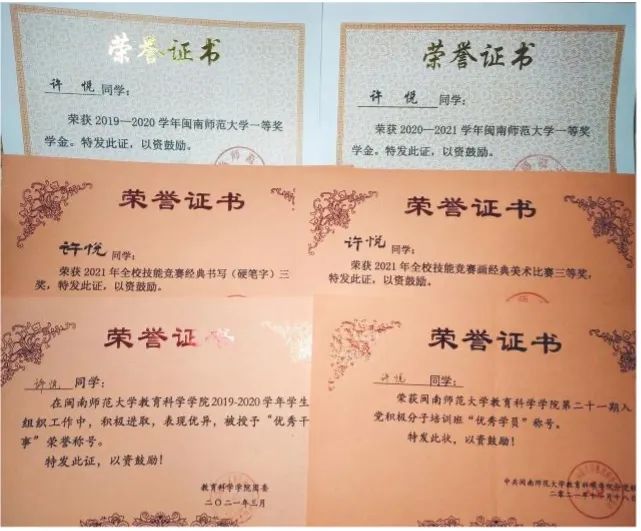 荣誉证书
许悦同学：
荣获2019—2020学年闽南师范大学一等奖
学金。特发此证，以资鼓励。
荣誉证书
许悦同学：
荣获2020—2021学年闽南师范大学一等奖
学金。特发此证，以资鼓励。
荣誉证书
许悦同学：
荣获2021年全校技能竞赛经典书写（硬笔字）三
奖，特发此证，以资鼓励。
荣誉证书
许悦同学：
荣获2021年全校技能竞赛画经典美术比赛三等奖，
特发此证，以资鼓励。
荣誉证书
许悦同学：
在闽南师范大学教育科学学院2019-2020学年学生
组织工作中，积极进取，表现优异，被授予“优秀干
事”荣誉称号。
特发此证，以资鼓励！
教育科学学院团委
二〇二一年三月
荣誉证书
许悦同学：
荣获闽南师范大学教育科学学院第二十一期入
党积极分子培训班“优秀学员”称号。
特发此状，以资鼓励！
中共闽南师范大学教育科学学院
二〇二一年十月十八日